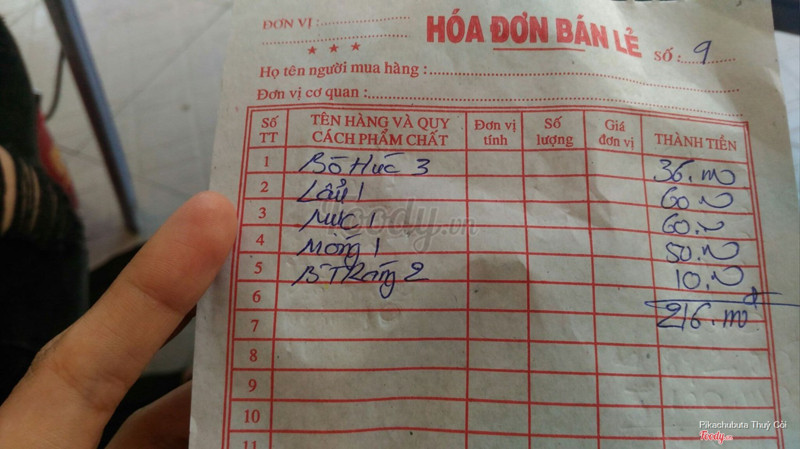 ĐƠN VỊ :
HÓA ĐƠN BÁN LẺ
SỐ : 9
Họ tên người mua hàng :
Đơn vị cơ quan :
Số TT TÊN HÀNG VÀ QUY CÁCH PHẨM CHẤT Đơn vị tính Số lượng Giá đơn vị THÀNH TIỀN
1 Bò Húc 3 36.
2 Lẩu 1 60.
3 Mực 1 60.
4 Móng 1 50.
5 B Tráng 2 10.
6
7 216.
8
9
10
11
foody.vn
Pikachubuta Thuỳ Còi
Foody.vn